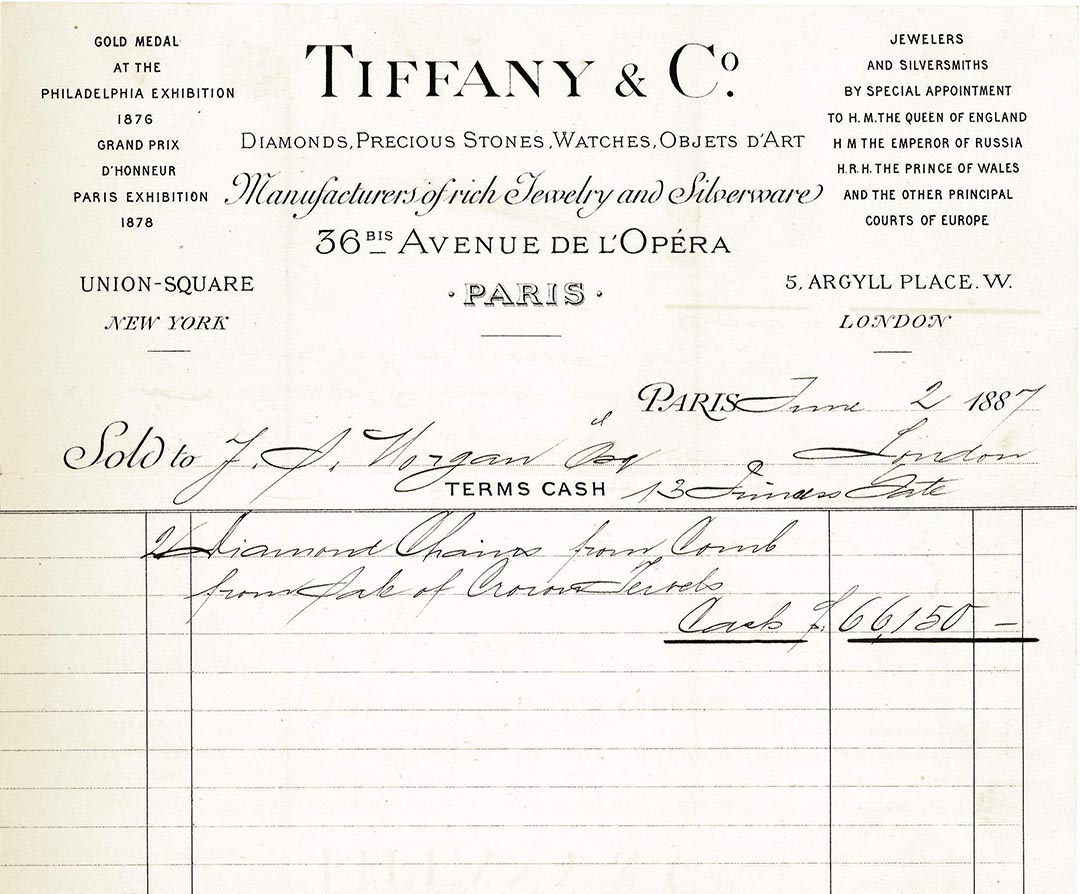 GOLD MEDAL
AT THE
PHILADELPHIA EXHIBITION
1876
GRAND PRIX
D'HONNEUR
PARIS EXHIBITION
1878
TIFFANY & Co.
DIAMONDS, PRECIOUS STONES, WATCHES, OBJETS D'ART
Manufacturers of rich Jewelry and Silverware
36 BIS AVENUE DE L'OPÉRA
· PARIS ·
JEWELERS
AND SILVERSMITHS
BY SPECIAL APPOINTMENT
TO H.M. THE QUEEN OF ENGLAND
H M THE EMPEROR OF RUSSIA
H.R.H. THE PRINCE OF WALES
AND THE OTHER PRINCIPAL
COURTS OF EUROPE
UNION-SQUARE
NEW YORK
5, ARGYLL PLACE. W.
LONDON
PARIS June 2 1887
Sold to J. S. Morgan Esq London
TERMS CASH 13 Princess Gate
2 Diamond Chains from Comb
from Sale of Crown Jewels
Cash f. 66,150 —